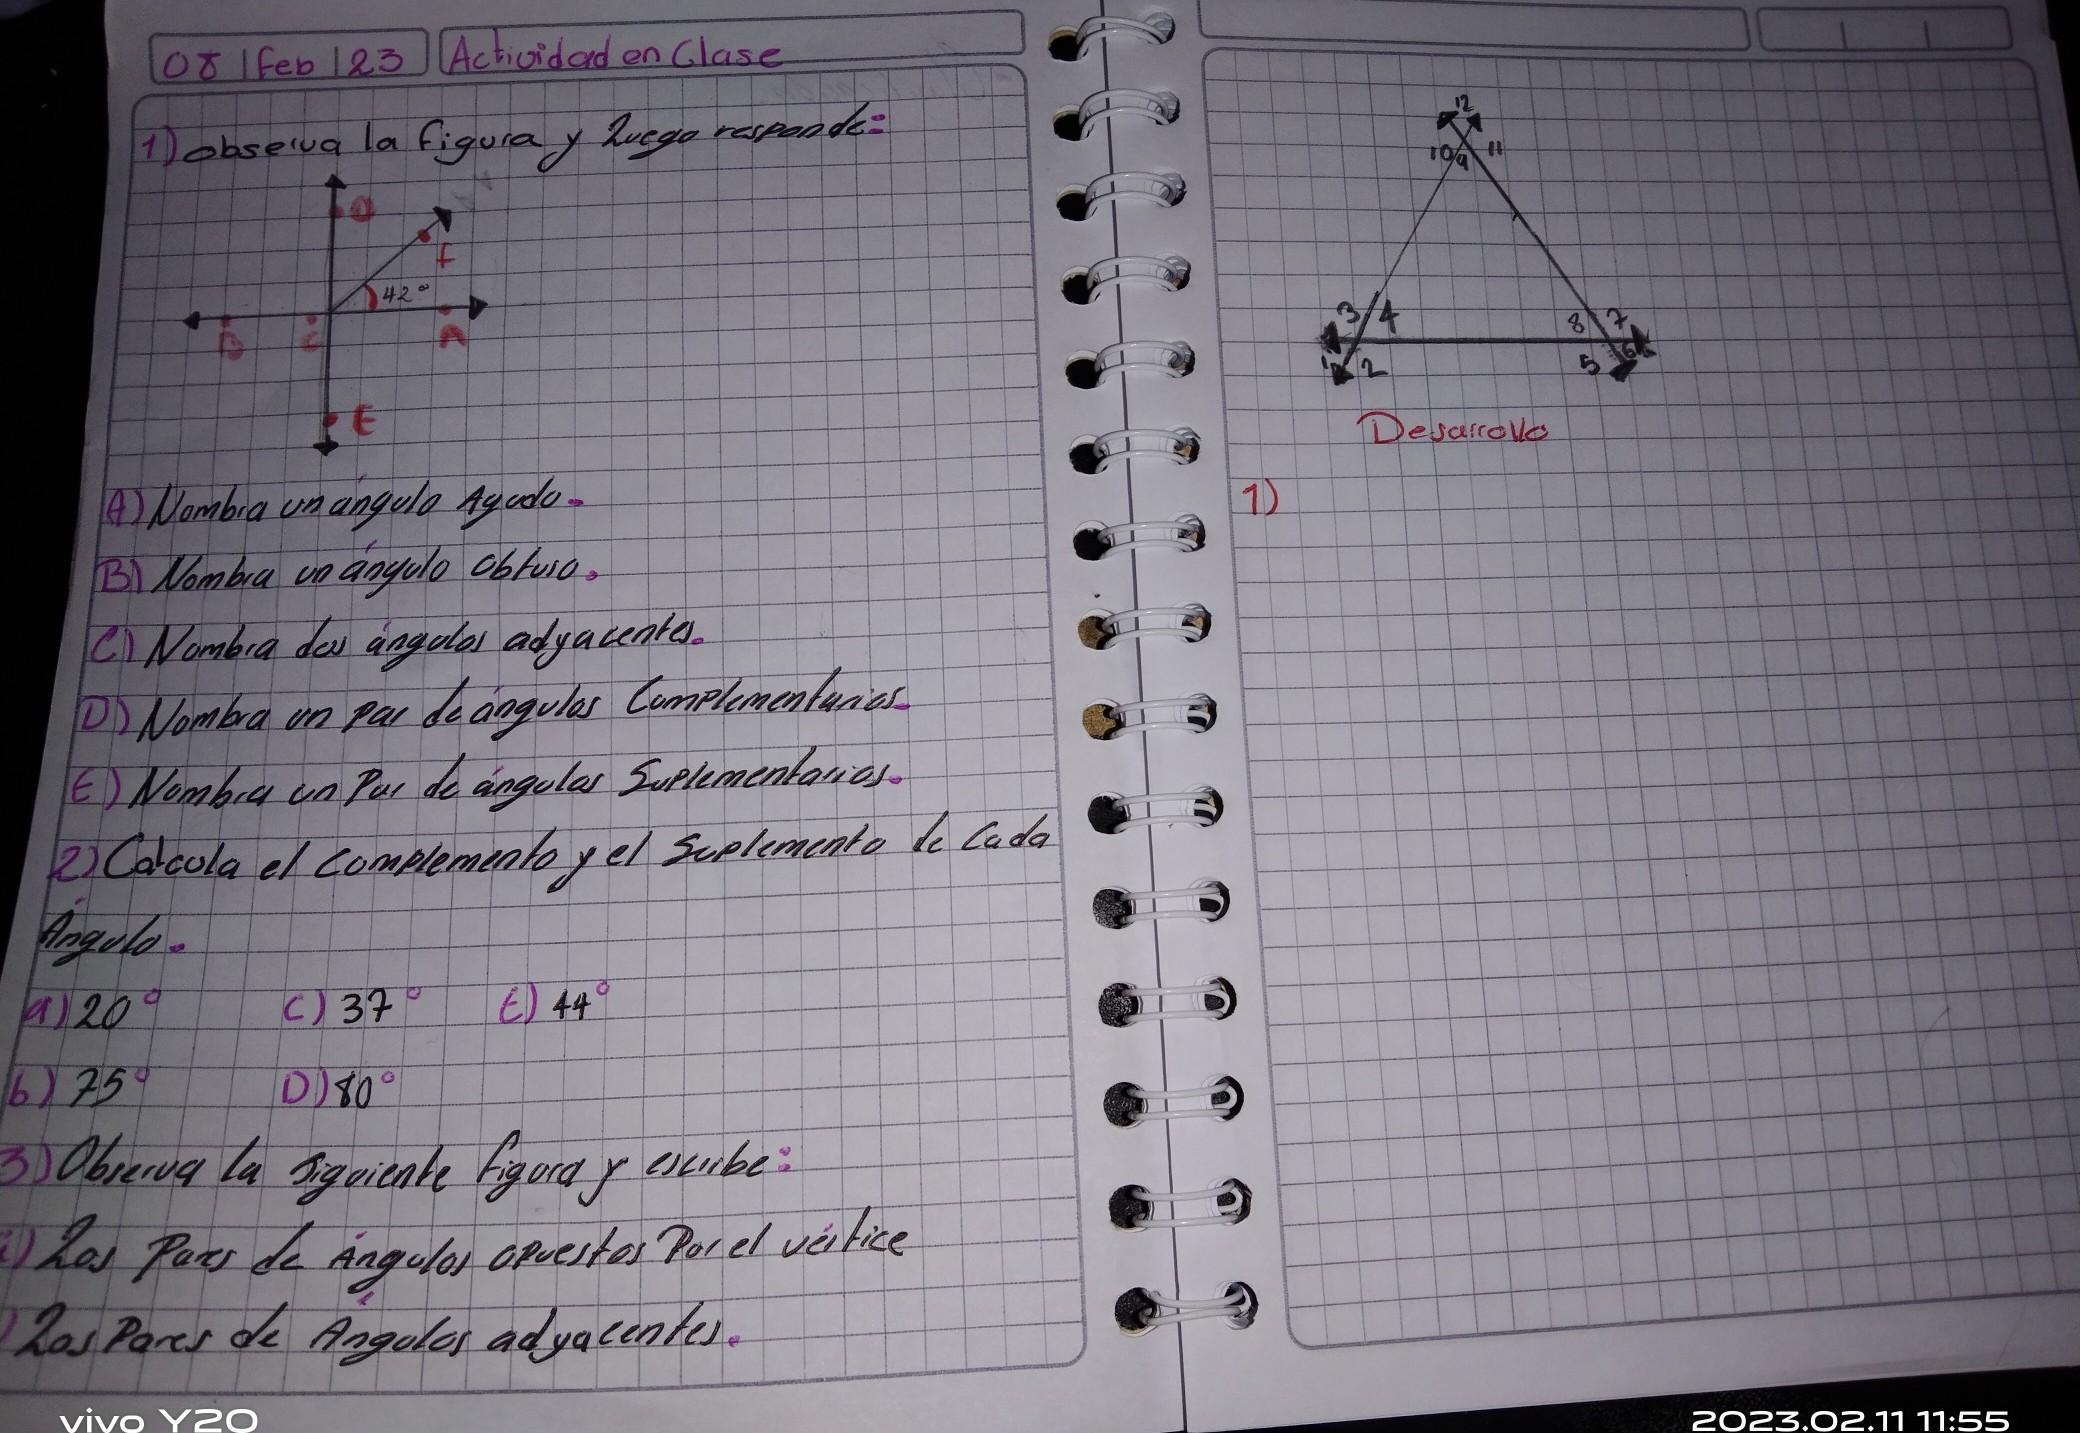 08 | Feb | 23 Actividad en Clase
1) observa la figura y luego responde:
F
42°
A
E
A) Nombra un ángulo Agudo.
B) Nombra un ángulo obtuso.
C) Nombra dos ángulos adyacentes.
D) Nombra un par de ángulos Complementarios.
E) Nombra un Par de ángulos Suplementarios.
2) Calcula el complemento y el Suplemento de Cada
Ángulo.
a) 20° C) 37° E) 44°
b) 75° D) 80°
3) Observa la siguiente figura y escribe:
Los Pares de Ángulos opuestos Por el vértice
Los Pares de Ángulos adyacentes.
12
10 9 11
3 4 8 7
1 2 5 6
Desarrollo
1)
vivo Y20
2023.02.11 11:55